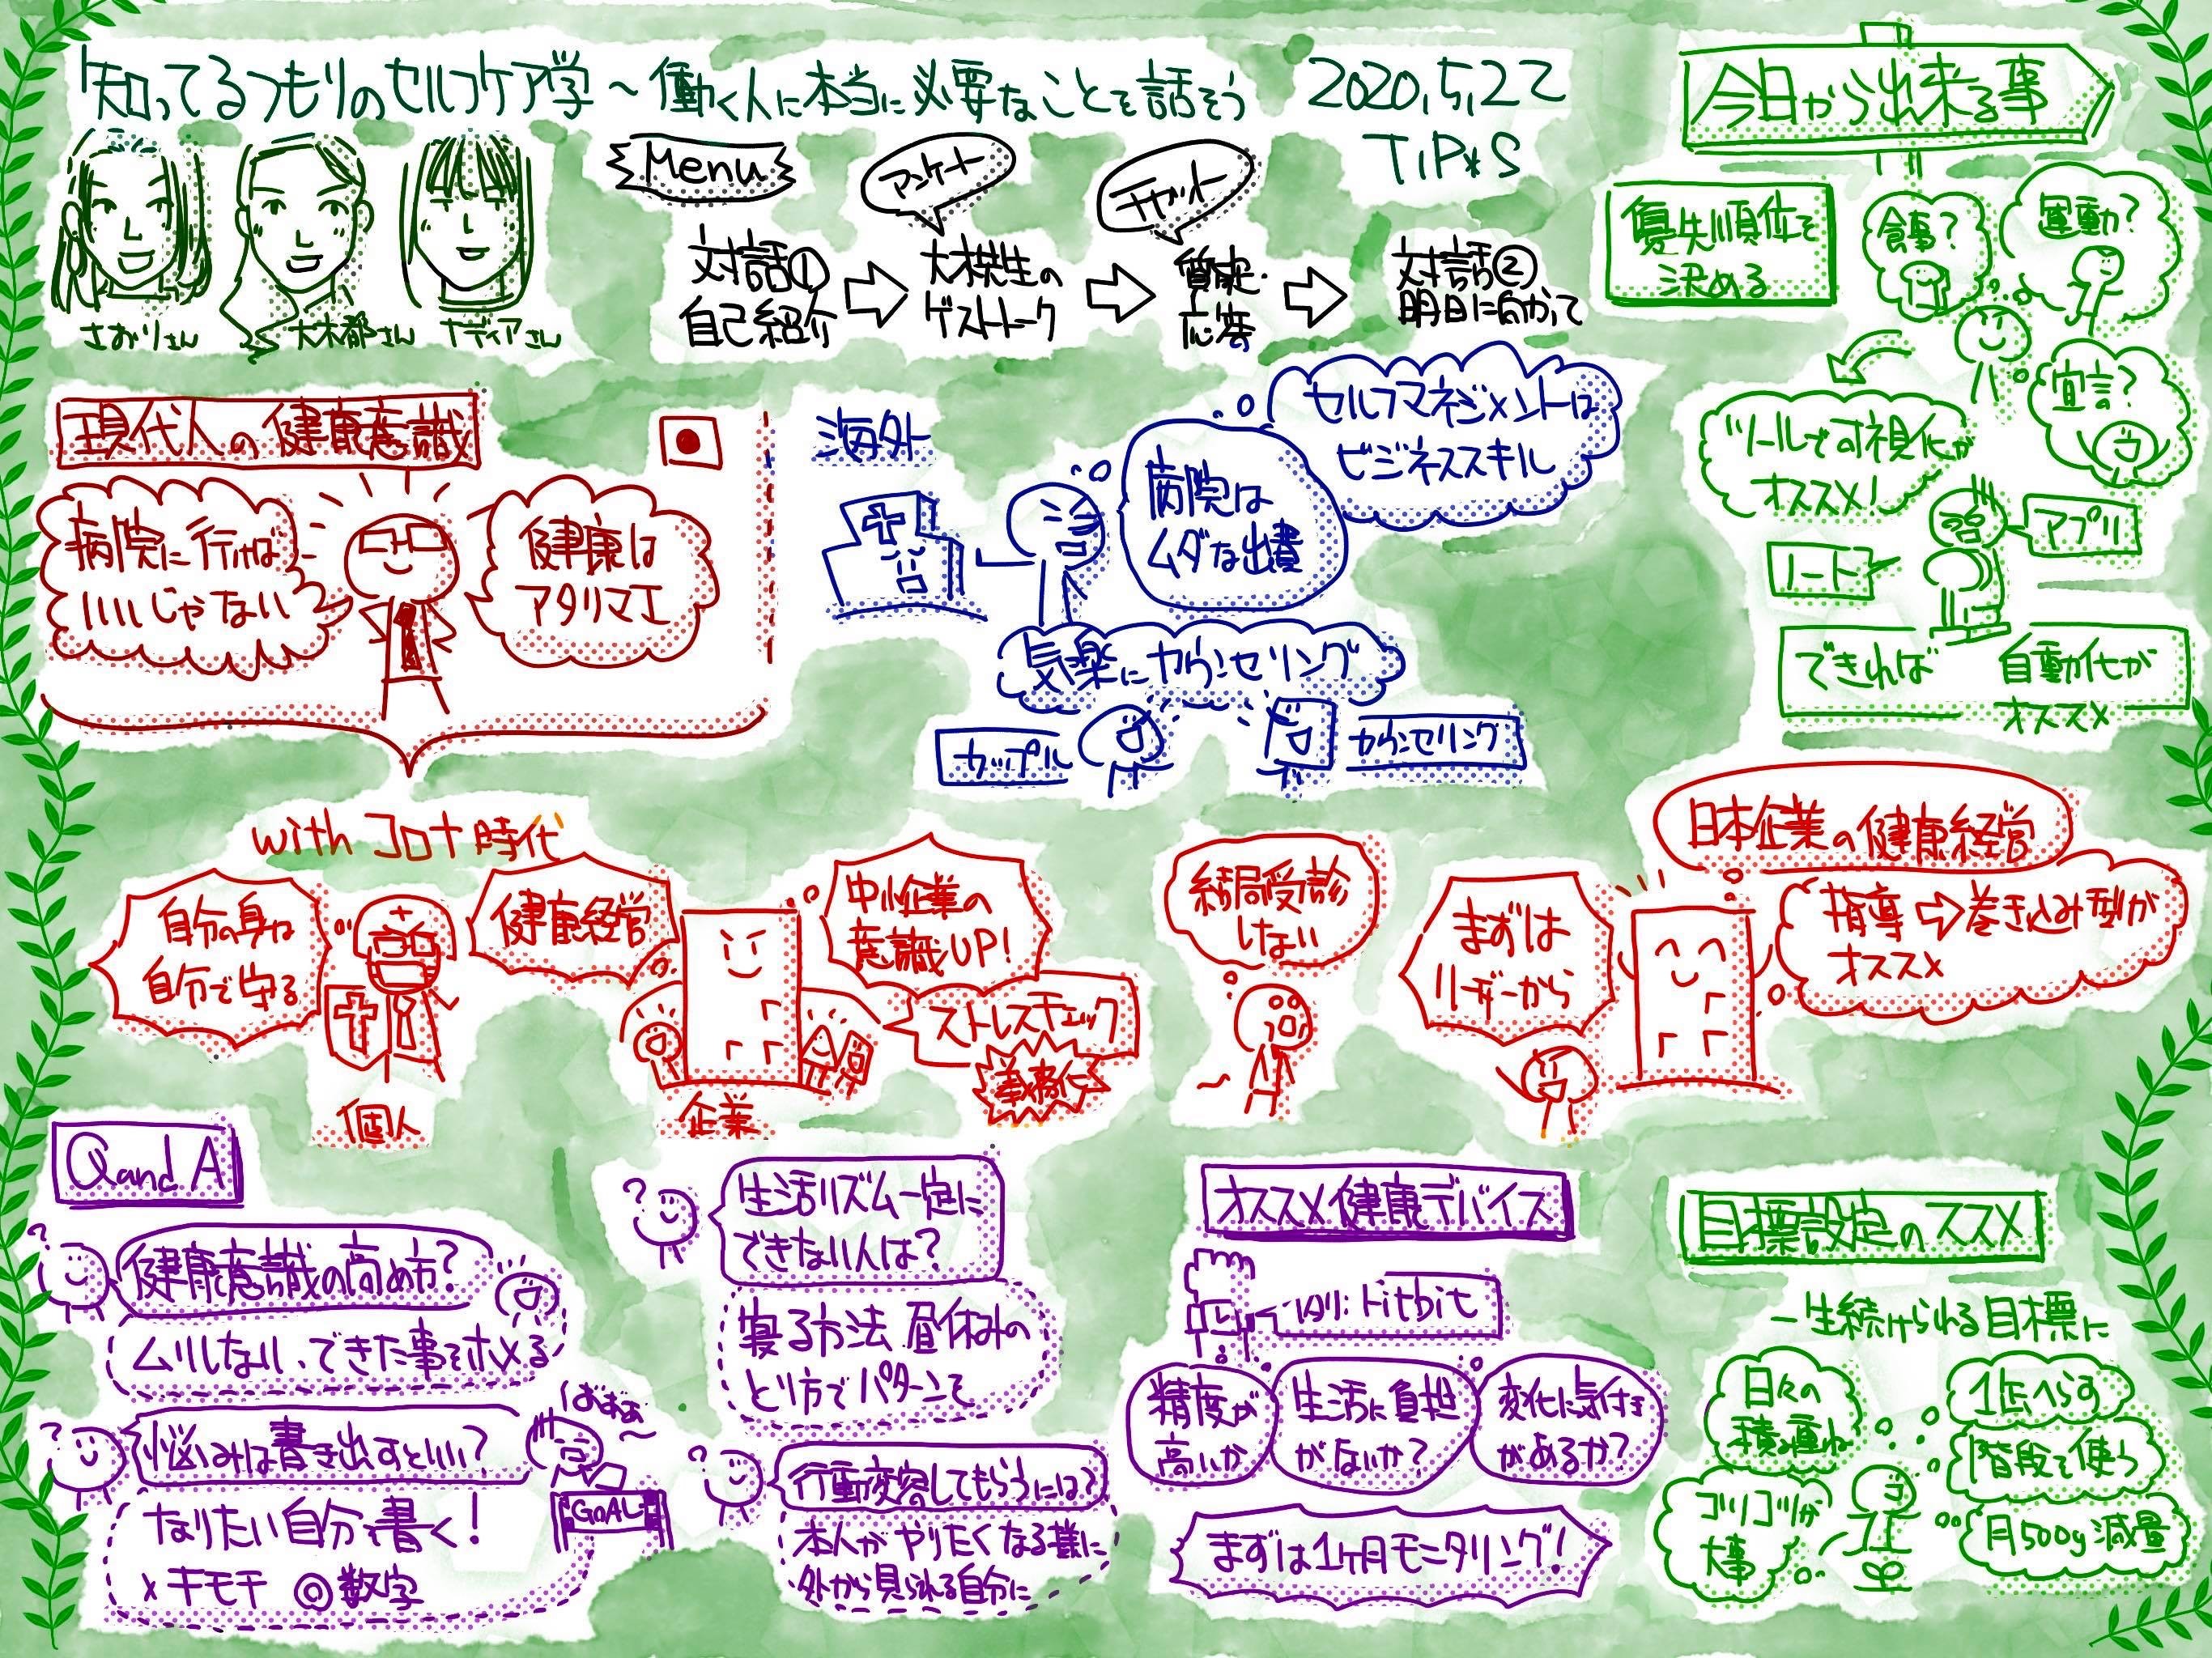 知ってるつもりのセルフケア学～働く人に本当に必要なことを話そう
2020,5,22
TIP*S
さおりさん
大木都さん
ナディアさん
Menu
アンケート
チャット
対話①
自己紹介
大木先生の
ゲストトーク
質疑・
応答
対話②
明日に向かって
今日から出来る事
優先順位を
決める
食事?
運動?
宣言?
ツールで可視化が
オススメ!
アプリ
ノート
できれば
自動化が
オススメ
現代人の健康意識
病院に行けば
いいじゃない
健康は
アタリマエ
海外
病院は
ムダな出費
セルフマネジメントは
ビジネススキル
気楽にカウンセリング
カップル
カウンセリング
withコロナ時代
自分の身は
自分で守る
個人
健康経営
企業
中小企業の
意識UP!
ストレスチェック
義務化
結局受診
しない
まずは
リーダーから
日本企業の健康経営
指導⇨巻き込み型が
オススメ
Q and A
健康意識の高め方?
ムリしない、できた事をホメる
悩みは書き出すといい?
はぁぁぁ～
GOAL
なりたい自分を書く!
×キモチ ◎数字
生活リズム一定に
できない人は?
寝る方法 昼休みの
とり方でパターンを
行動変容してもらうには?
本人がやりたくなる様に
外から見られる自分に
オススメ健康デバイス
fitbit
精度が
高いか
生活に負担
がないか?
変化に気付き
があるか?
まずは1ヶ月モニタリング!
目標設定のススメ
一生続けられる目標に
日々の
積み重ね
コツコツが
大事
階段を使う
月500g減量